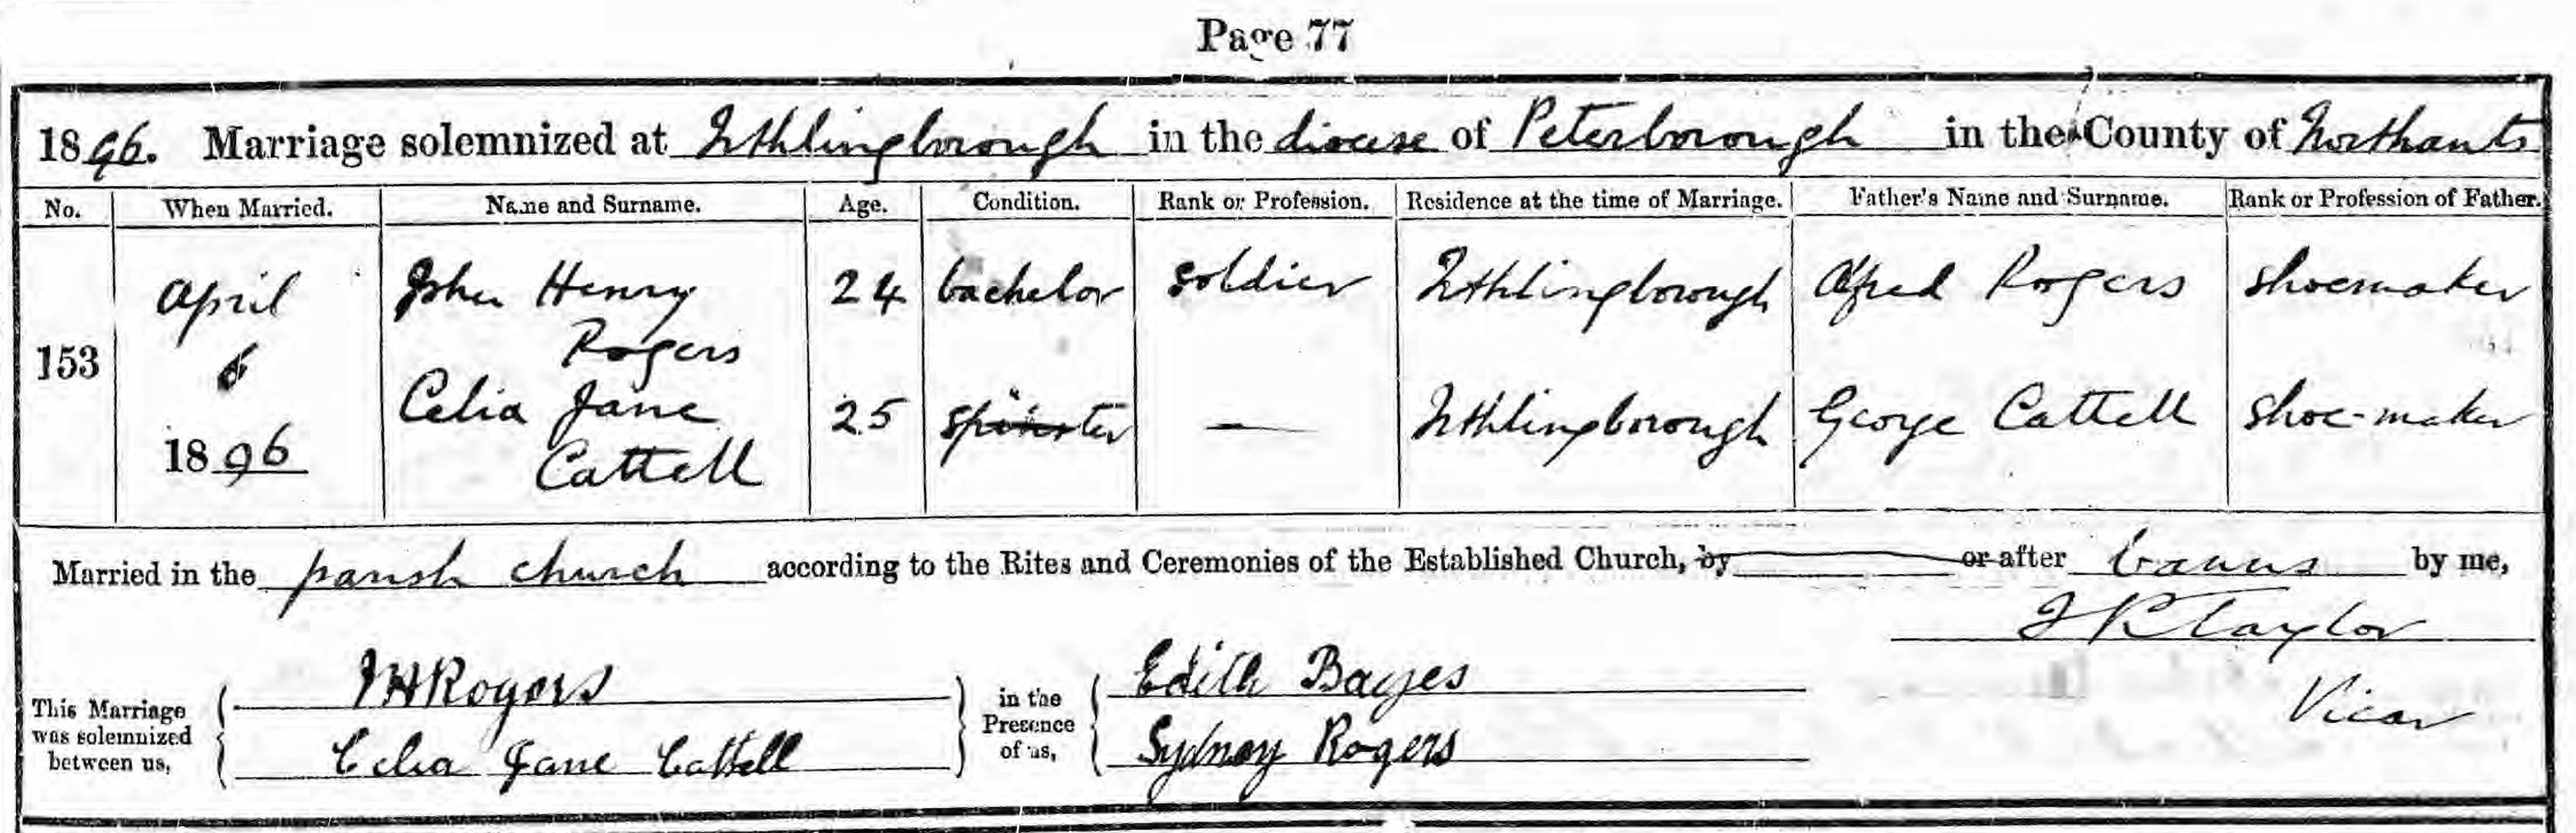 Page 77
1896. Marriage solemnized at Irthlingborough in the diocese of Peterborough in the County of Northants
No. When Married. Name and Surname. Age. Condition. Rank or Profession. Residence at the time of Marriage. Father's Name and Surname. Rank or Profession of Father.
April John Henry 24 bachelor soldier Irthlingborough Alfred Rogers shoemaker
Rogers
153 6
Celia Jane 25 spinster — Irthlingborough George Cattell shoe-maker
1896 Cattell
Married in the parish church according to the Rites and Ceremonies of the Established Church, by or after banns by me,
Taylor
Vicar
This Marriage was solemnized between us,
J H Rogers
Celia Jane Cattell
in the Presence of us,
Edith Bayes
Sydney Rogers